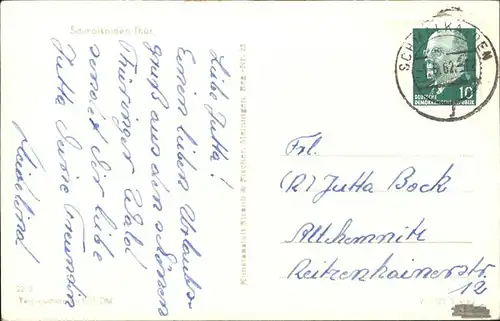 Schmalkalden Thür.
Liebe Jutta!
Einen lieben Urlaubs-
gruß aus dem schönen
Thüringer Wald
sendet Dir liebe
Jutta Deine Freundin
Heidelind
Kunstanstalt Straub & Fischer, Meiningen,
SCHMALKALDEN
62
10
DEUTSCHE
DEMOKRATISCHE REPUBLIK
Frl.
Jutta Bock
Altchemnitz
Reitzenhainerstr
12